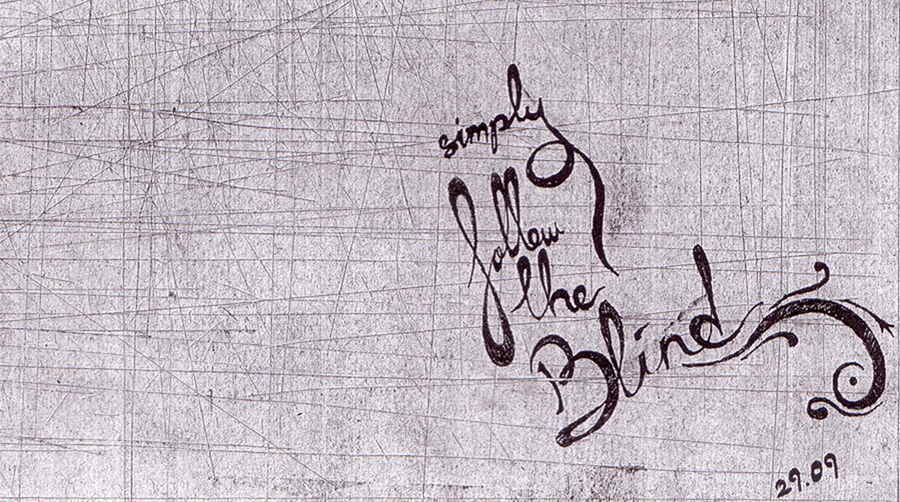 simply
follow
the
Blind
29.09